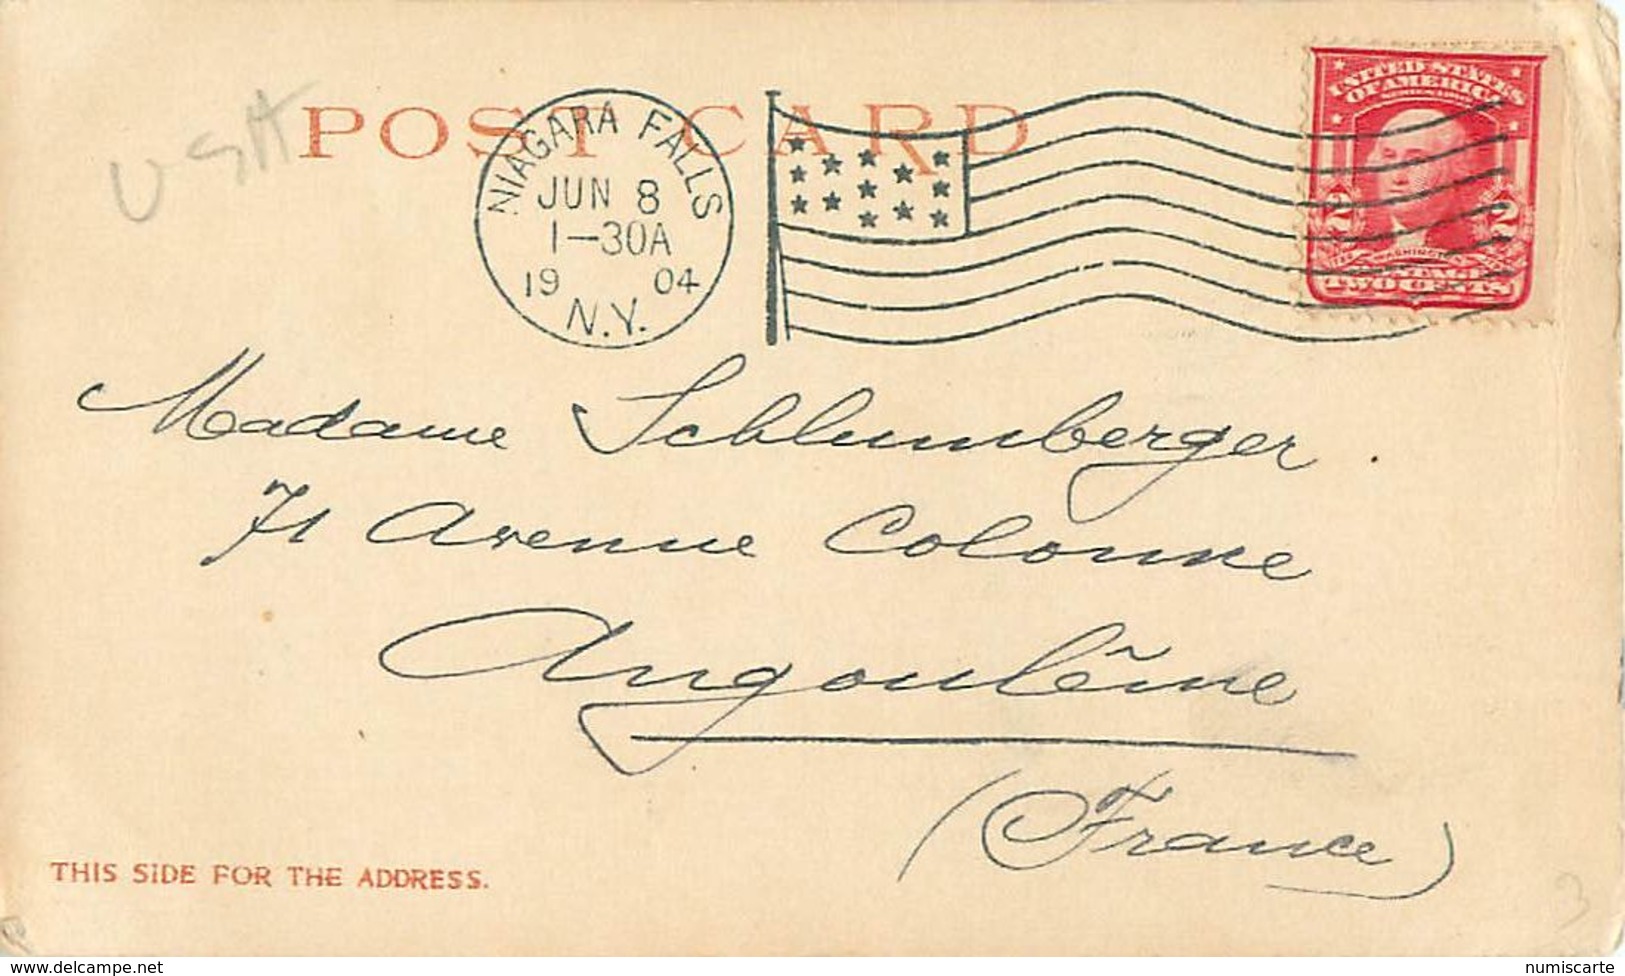 USA
POST CARD
NIAGARA FALLS
JUN 8
1-30A
19 04
N.Y.
UNITED STATES
OF AMERICA
2 2
WASHINGTON
POSTAGE
TWO CENTS
Madame Schlumberger.
71 Avenue Colonne
Angoulême
(France)
THIS SIDE FOR THE ADDRESS.
3
delcampe.net
numiscarte